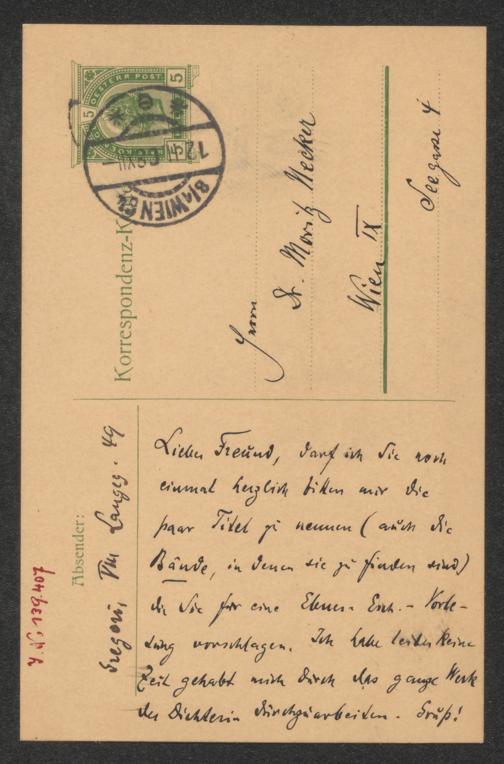 5 OESTERR. POST. 5
Korrespondenz-K
8/1 WIEN 64
12
XII
Herrn
Dr. Moriz Necker
Wien IX
Seegasse 4
Absender:
Gregori, VIII Langeg. 49
Lieber Freund, darf ich Sie noch
einmal herzlich bitten mir die
paar Titel zu nennen (auch die
Bände, in denen sie zu finden sind)
die Sie für eine Ebner-Esch.-Vorle-
sung vorschlagen. Ich habe leider keine
Zeit gehabt mich durch das ganze Werk
der Dichterin durchzuarbeiten. Gruß!